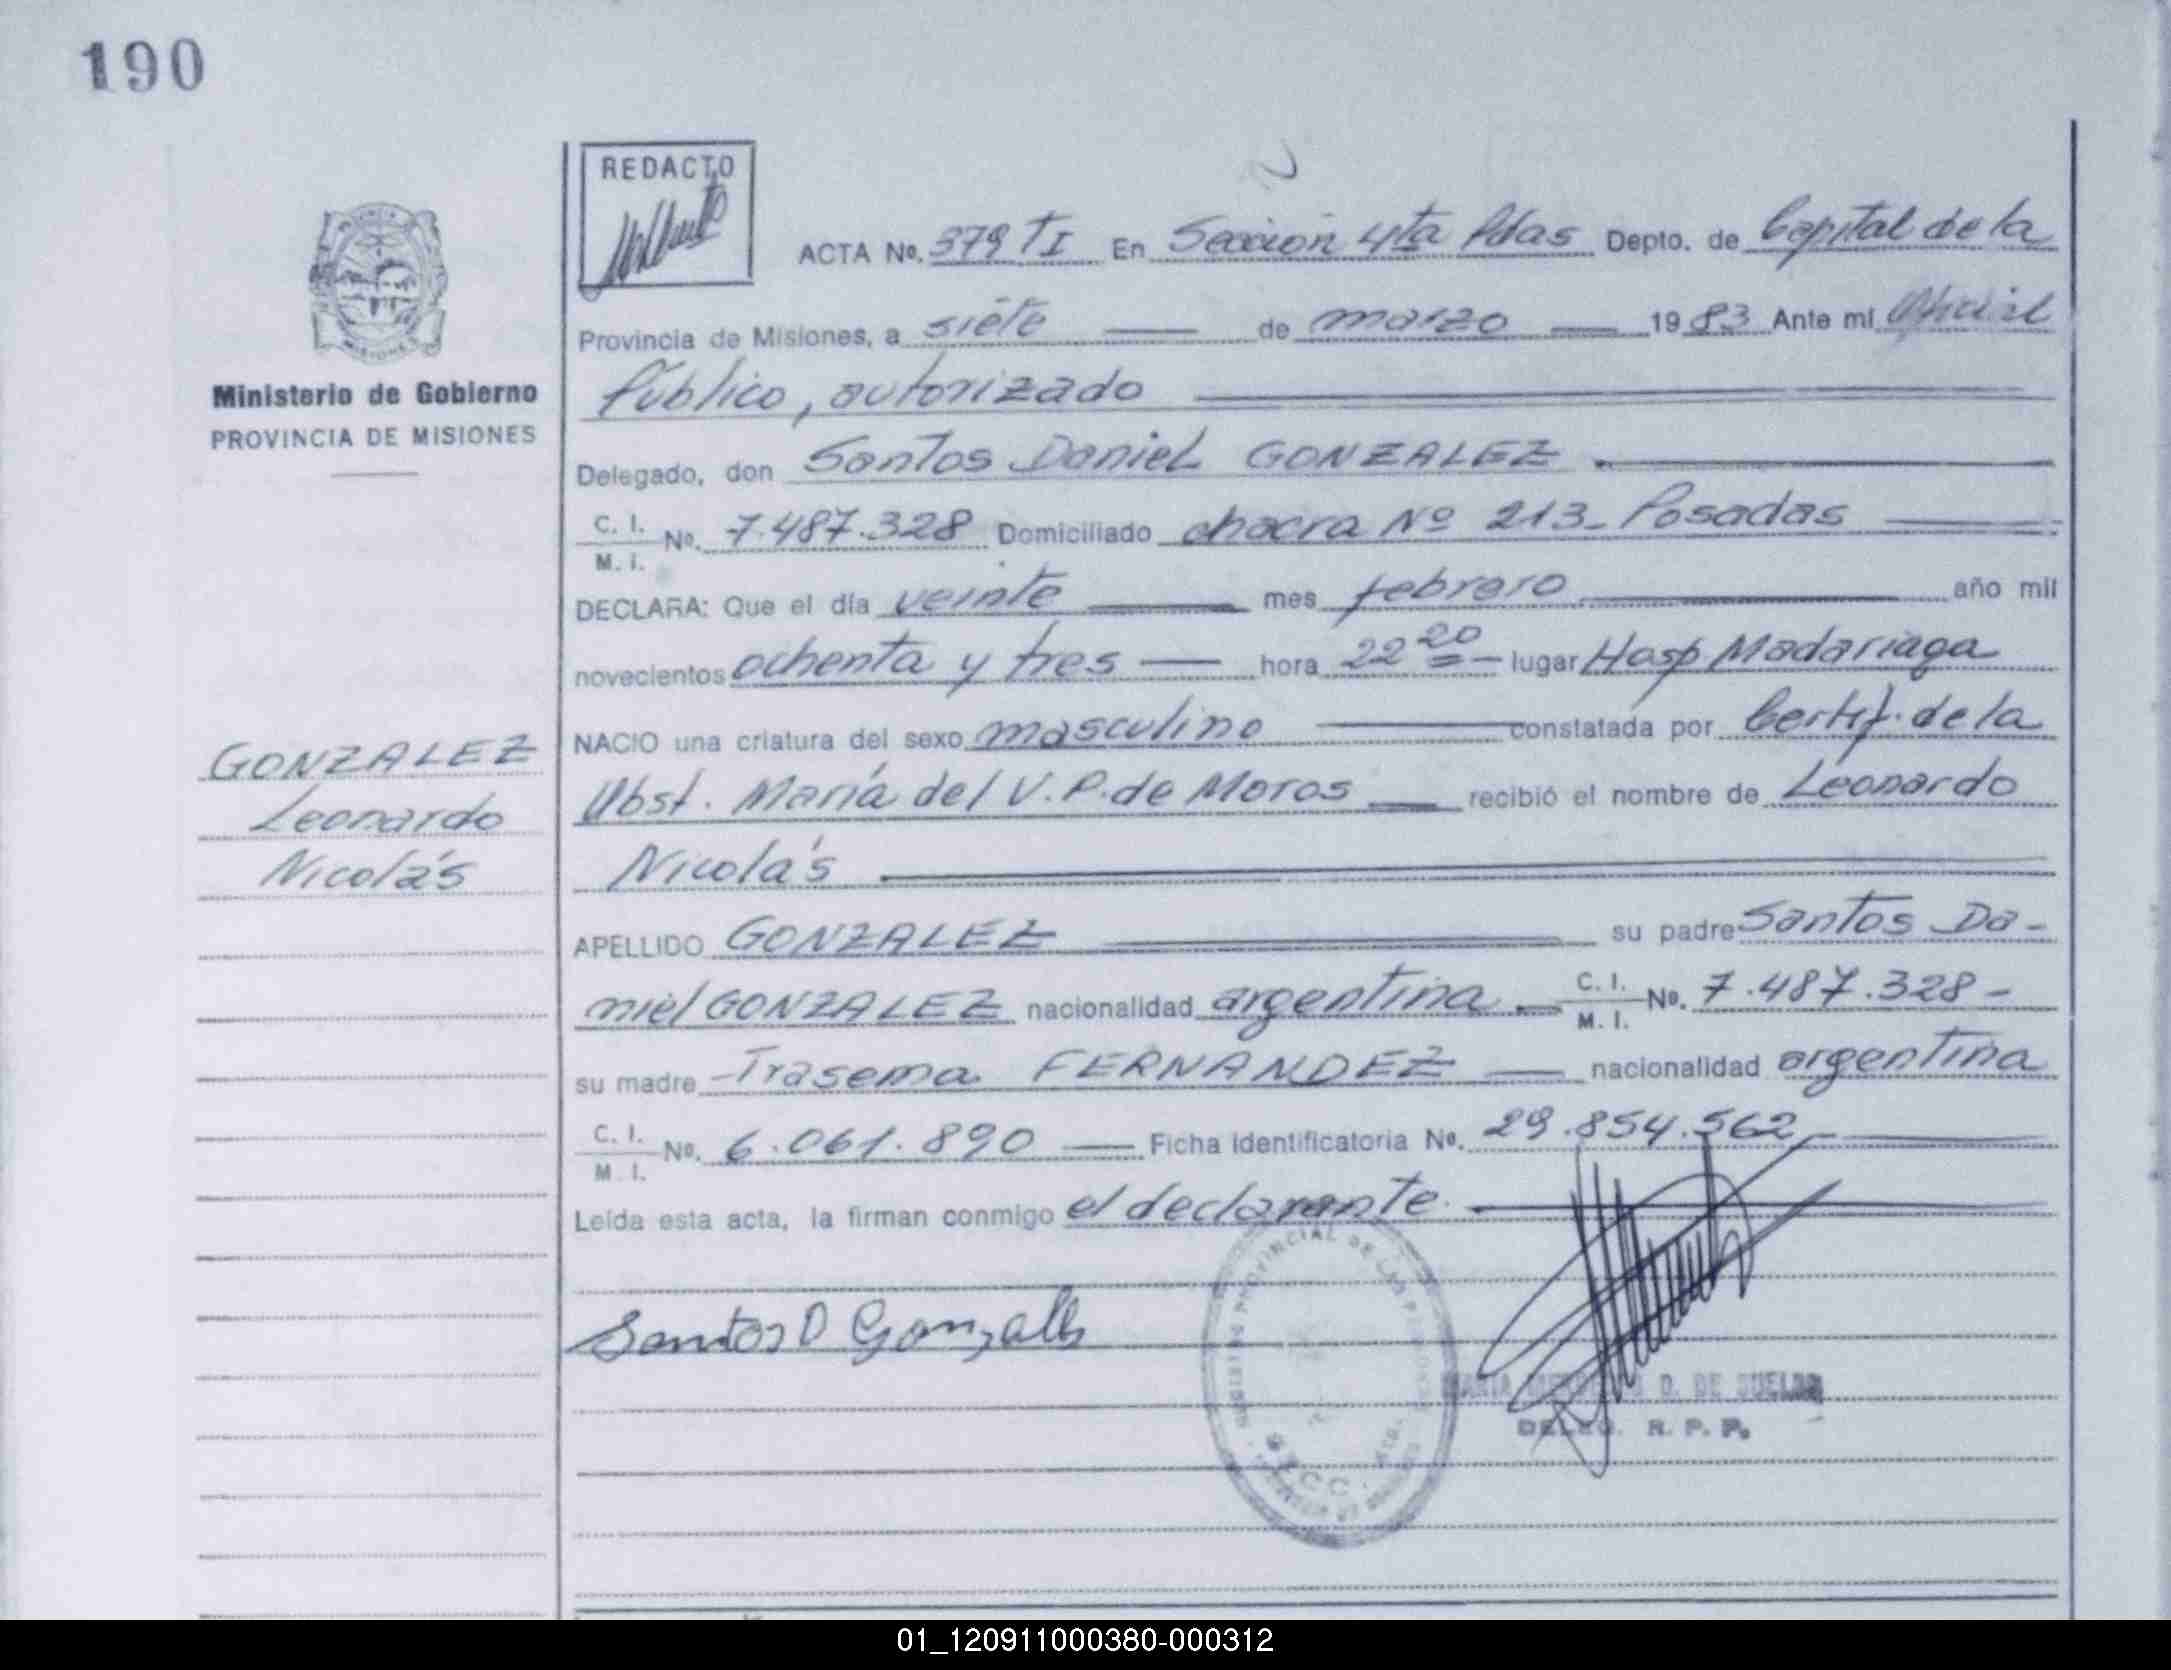 190
REDACTO
ACTA No. 379 TI En Sección 4ta Pdas Depto. de Capital de la
Provincia de Misiones, a siete de marzo 1983 Ante mi Oficial
Público, autorizado
Ministerio de Gobierno
PROVINCIA DE MISIONES
Delegado, don Santos Daniel GONZALEZ
C. I.
M. I. No. 7.487.328 Domiciliado chacra Nº 213 - Posadas
DECLARA: Que el día veinte mes febrero año mil
novecientos ochenta y tres hora 22 20 lugar Hosp Madariaga
NACIO una criatura del sexo masculino constatada por Certif. de la
Obst. María del V. P. de Moros recibió el nombre de Leonardo
Nicolás
GONZALEZ
Leonardo
Nicolás
APELLIDO GONZALEZ su padre Santos Da-
niel GONZALEZ nacionalidad argentina C. I.
M. I. No. 7.487.328-
su madre Trasema FERNANDEZ nacionalidad argentina
C. I.
M. I. No. 6.061.890 Ficha Identificatoria No. 29.854.562
Leída esta acta, la firman conmigo el declarante.
Santos D Gonzalez
PROVINCIAL DE LAS PERSONAS
MARIA D. DE
DELEG. R. P. P.
MISIONES
01_120911000380-000312